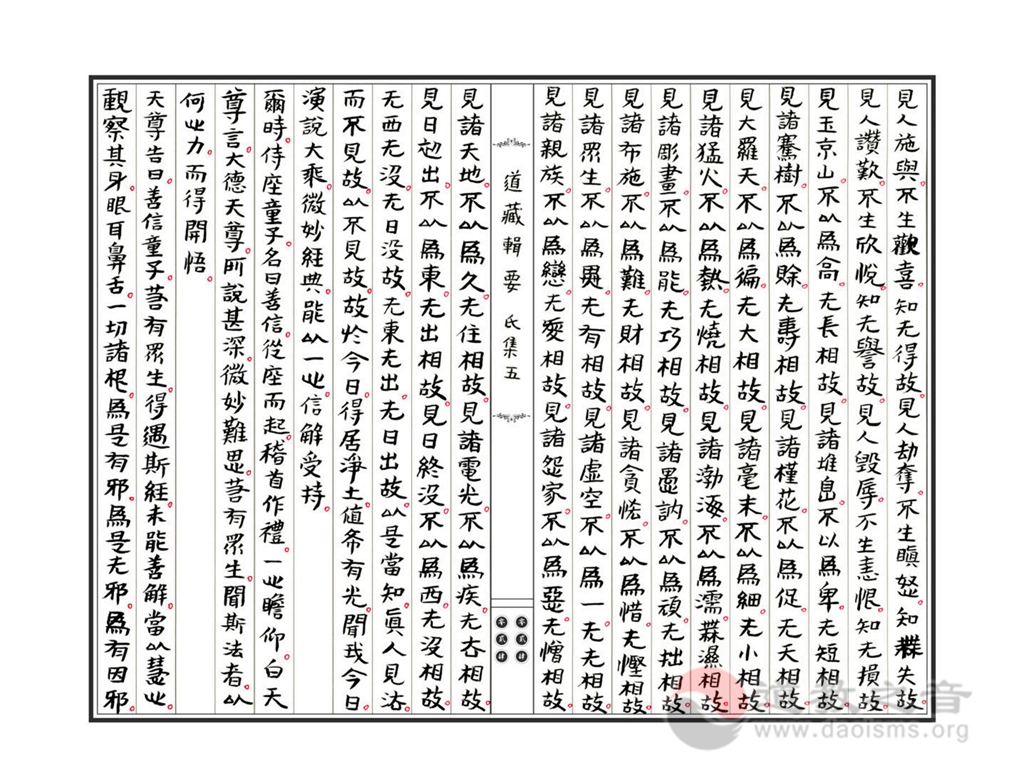 見人施與不生歡喜知无得故見人劫奪不生瞋怒知無失故
見人讚歎不生欣悅知无譽故見人毀辱不生恚恨知无損故
見玉京山不以爲高无長相故見諸堆阜不以爲卑无短相故
見諸騫樹不以爲賒无壽相故見諸槿花不以爲促无夭相故
見大羅天不以爲徧无大相故見諸毫末不以爲細无小相故
見諸猛火不以爲熱无燒相故見諸渤澥不以爲濡無濕相故
見諸彫畫不以爲能无巧相故見諸愚訥不以爲頑无拙相故
見諸布施不以爲難无財相故見諸貪恡不以爲惜无慳相故
見諸眾生不以爲異无有相故見諸虛空不以爲一无无相故
見諸親族不以爲戀无愛相故見諸怨家不以爲惡无憎相故
道藏輯要 氐集五
零貳肆
零貳肆
見諸天地不以爲久无住相故見諸電光不以爲疾无夲相故
見日初出不以爲東无出相故見日終沒不以爲西无沒相故
无西无沒无日沒故无東无出无日出故以是當知眞人見法
而不見故以不見故故於今日得居淨土值斯有光聞我今日
演說大乘微妙經典能以一心信解受持
爾時侍座童子名曰善信從座而起稽首作禮一心瞻仰白天
尊言大德天尊所說甚深微妙難思若有眾生聞斯法者以
何心力而得開悟
天尊告曰善信童子若有眾生得遇斯經未能善解當以慧心
觀察其身眼耳鼻舌一切諸根爲是有邪爲是无邪爲有因邪
道教之音
www.daoisms.org